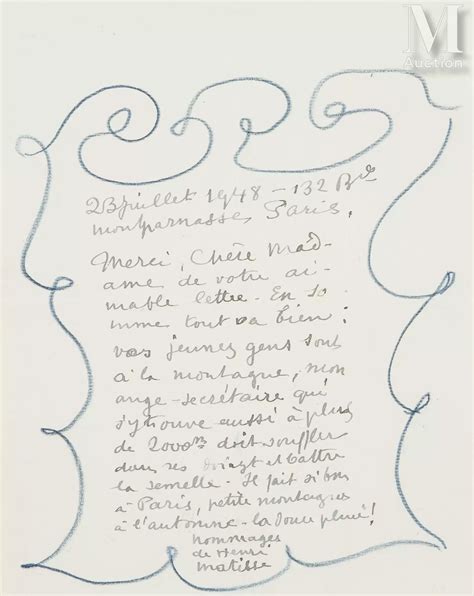 M
Auction
23 juillet 1948 - 132 Bd
montparnasse Paris.
Merci, Chère Mad
ame de votre ai-
mable lettre - En so
mme tout va bien :
vos jeunes gens sont
à la montagne, mon
ange-secrétaire qui
s'y trouve aussi à plus
de 2000m doit souffler
dans ses doigts et battre
la semelle - Il fait si bon
à Paris, petite montagne
à l'automne - la douce pluie !
hommages
de Henri
Matisse